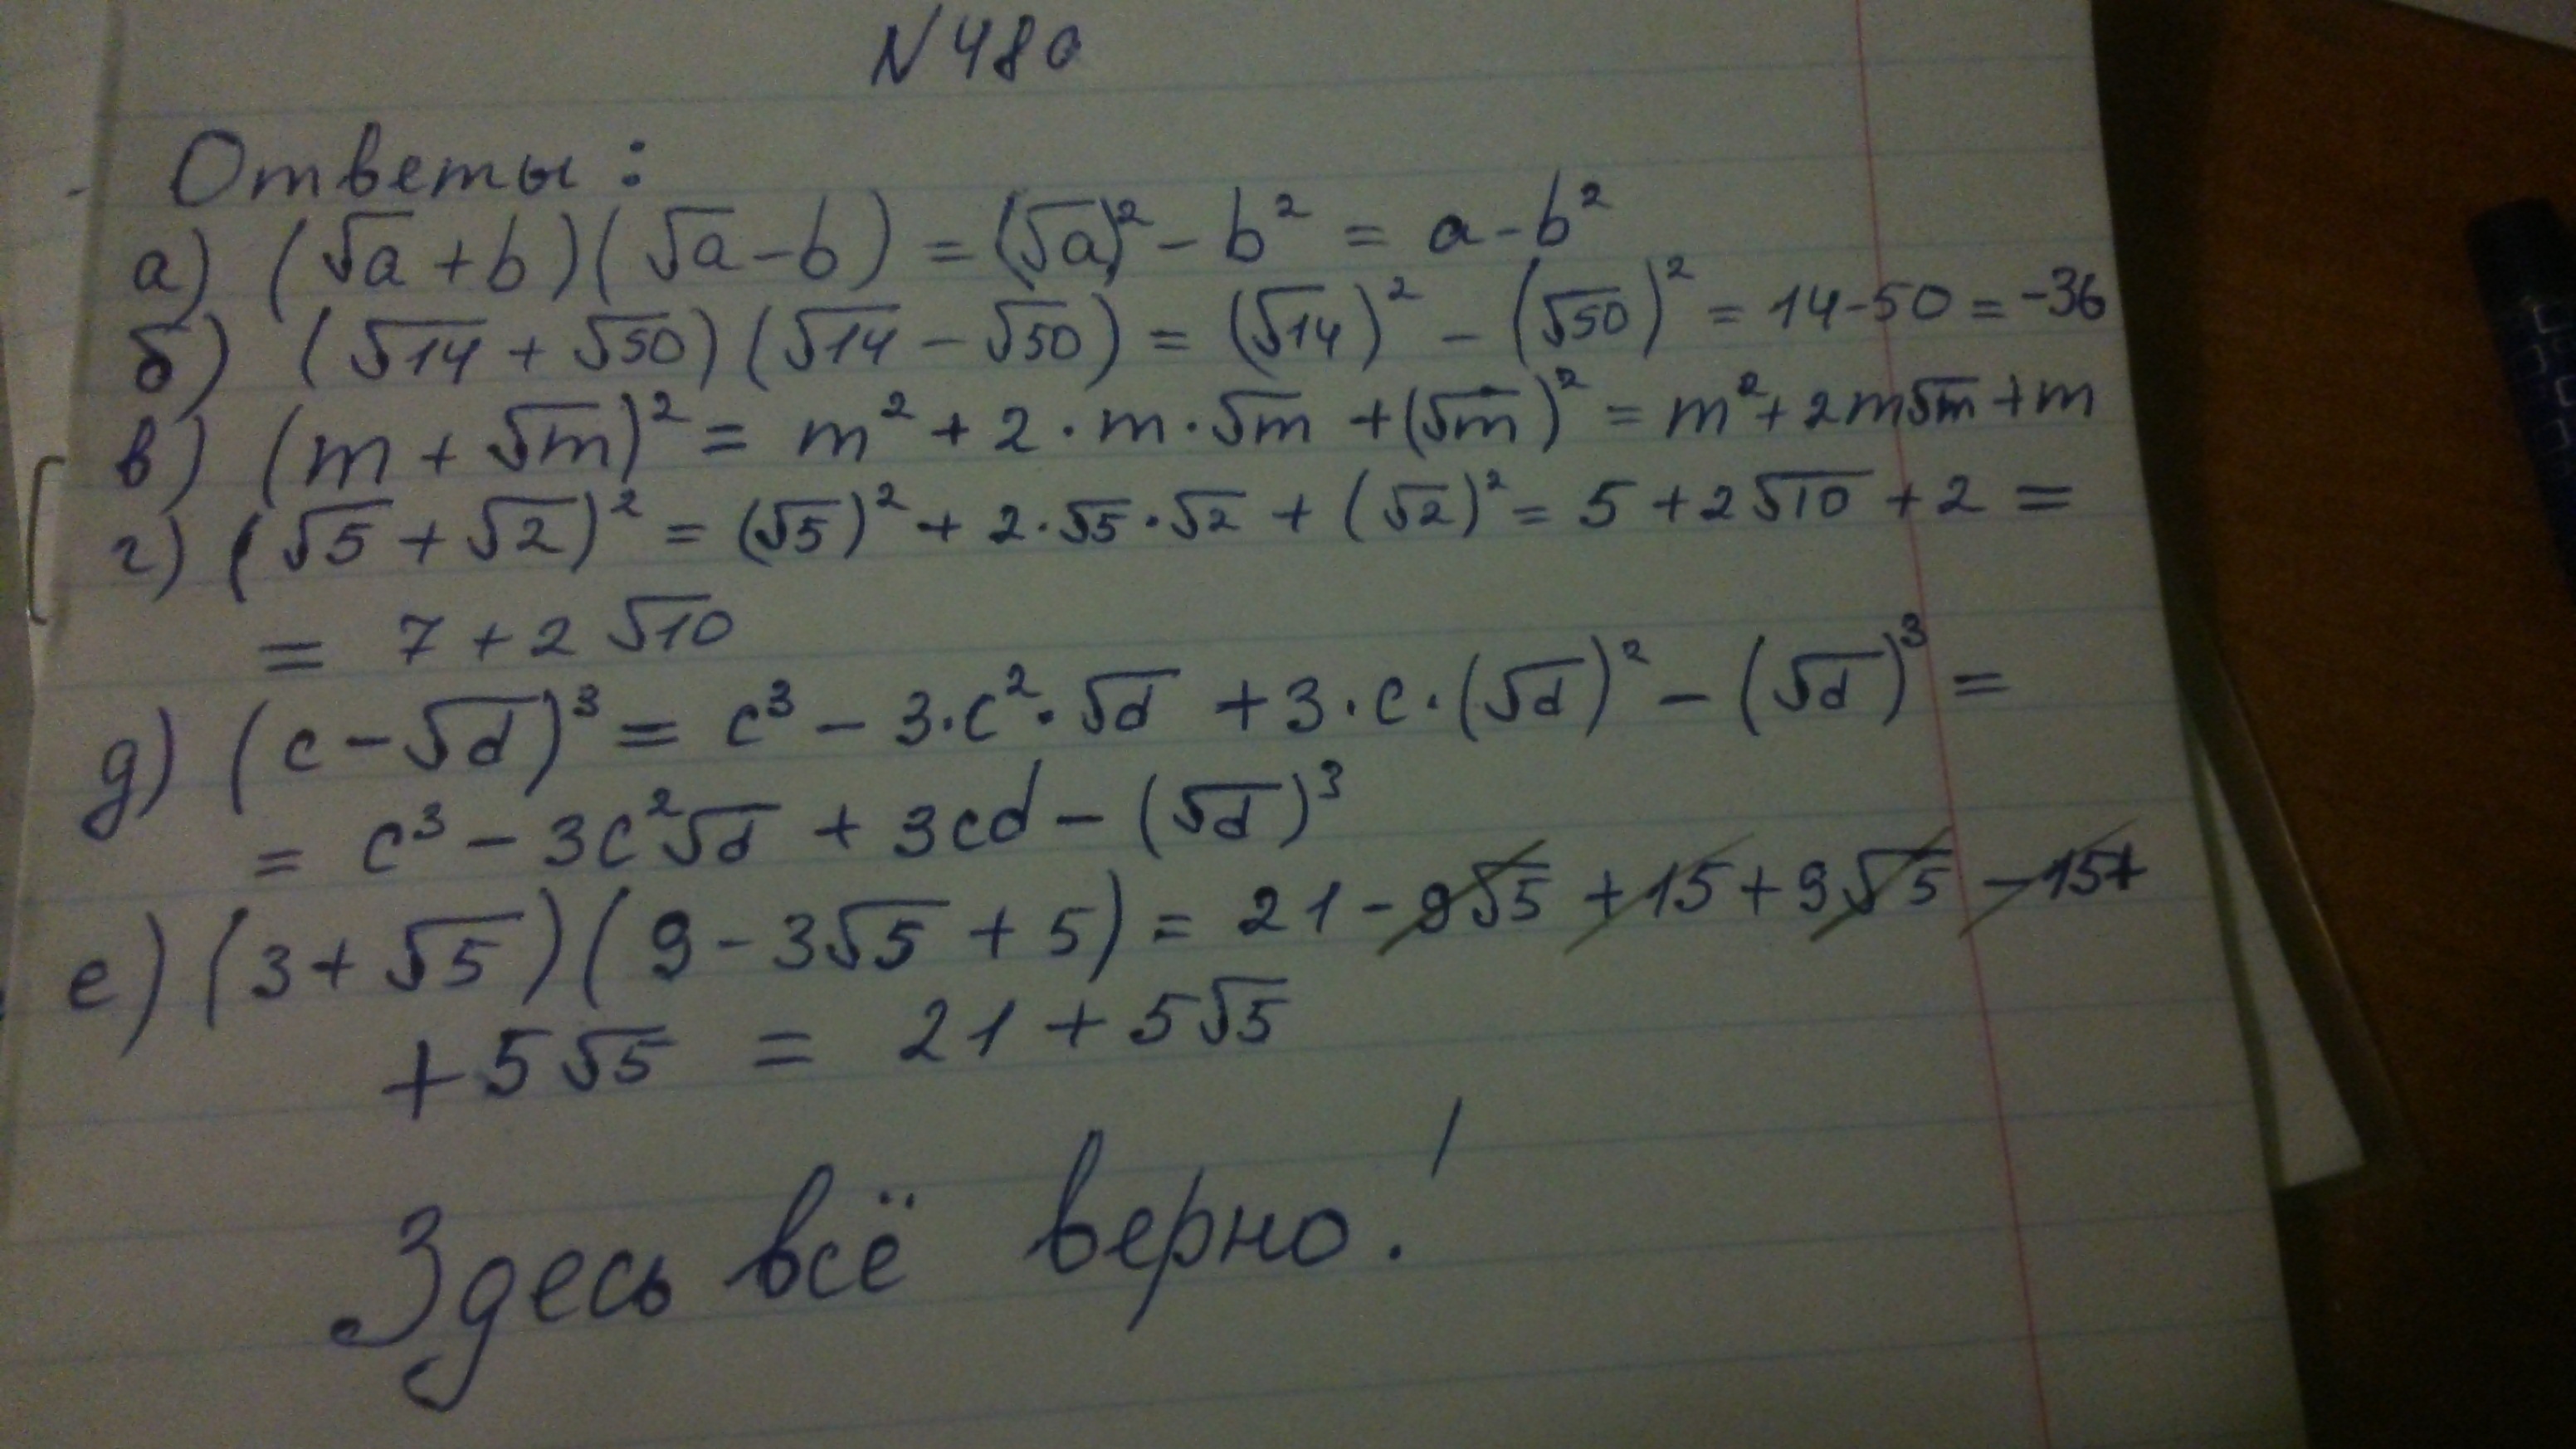 N 480
Ответы:
а) (√a + b)(√a - b) = (√a)² - b² = a - b²
б) (√14 + √50)(√14 - √50) = (√14)² - (√50)² = 14 - 50 = -36
в) (m + √m)² = m² + 2 · m · √m + (√m)² = m² + 2m√m + m
г) (√5 + √2)² = (√5)² + 2 · √5 · √2 + (√2)² = 5 + 2√10 + 2 =
= 7 + 2√10
д) (c - √d)³ = c³ - 3 · c² · √d + 3 · c · (√d)² - (√d)³ =
= c³ - 3c²√d + 3cd - (√d)³
е) (3 + √5)(9 - 3√5 + 5) = 21 - 9√5 + 15 + 9√5 - 15 +
+ 5√5 = 21 + 5√5
Здесь всё верно!